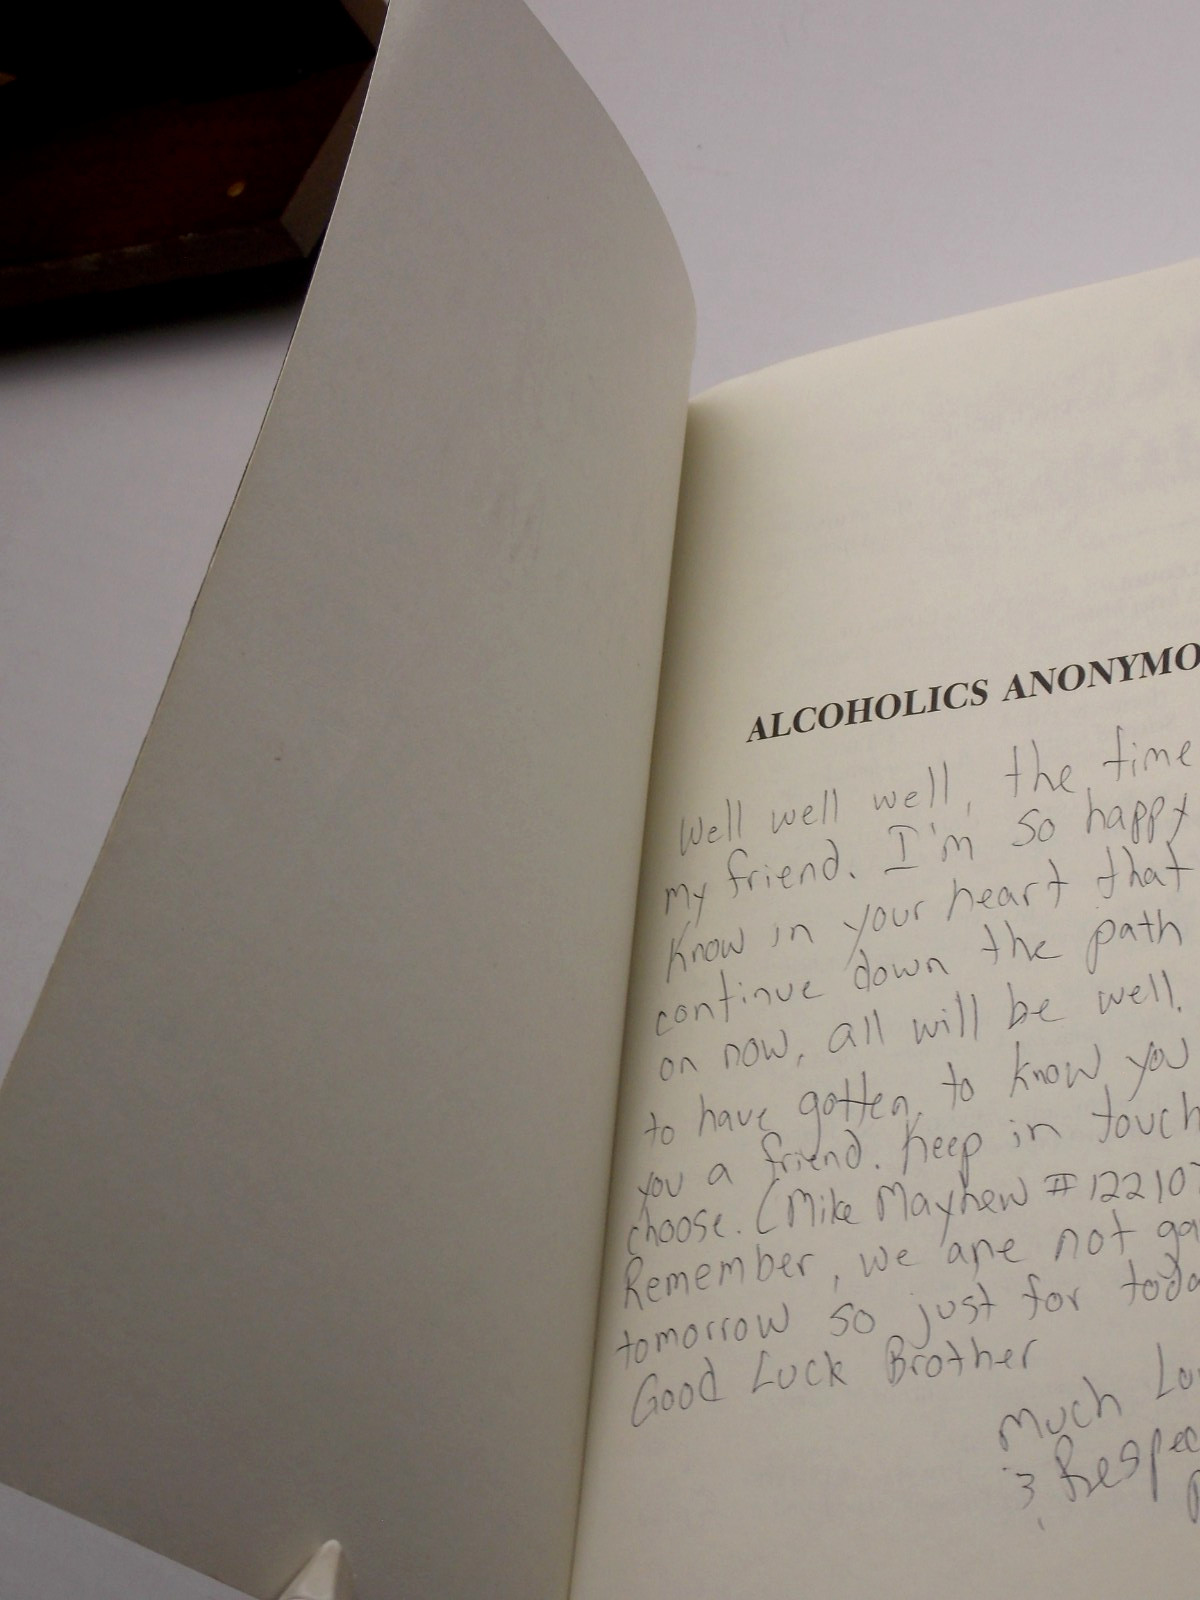 ALCOHOLICS ANONYMO
Well well well, the time
my friend. I'm so happy
know in your heart that
continue down the path
on now, all will be well.
to have gotten to know you
you a friend. Keep in touch
choose. (Mike Mayhew # 122107
Remember, we are not ga
tomorrow so just for toda
Good Luck Brother
Much Lov
& Respec